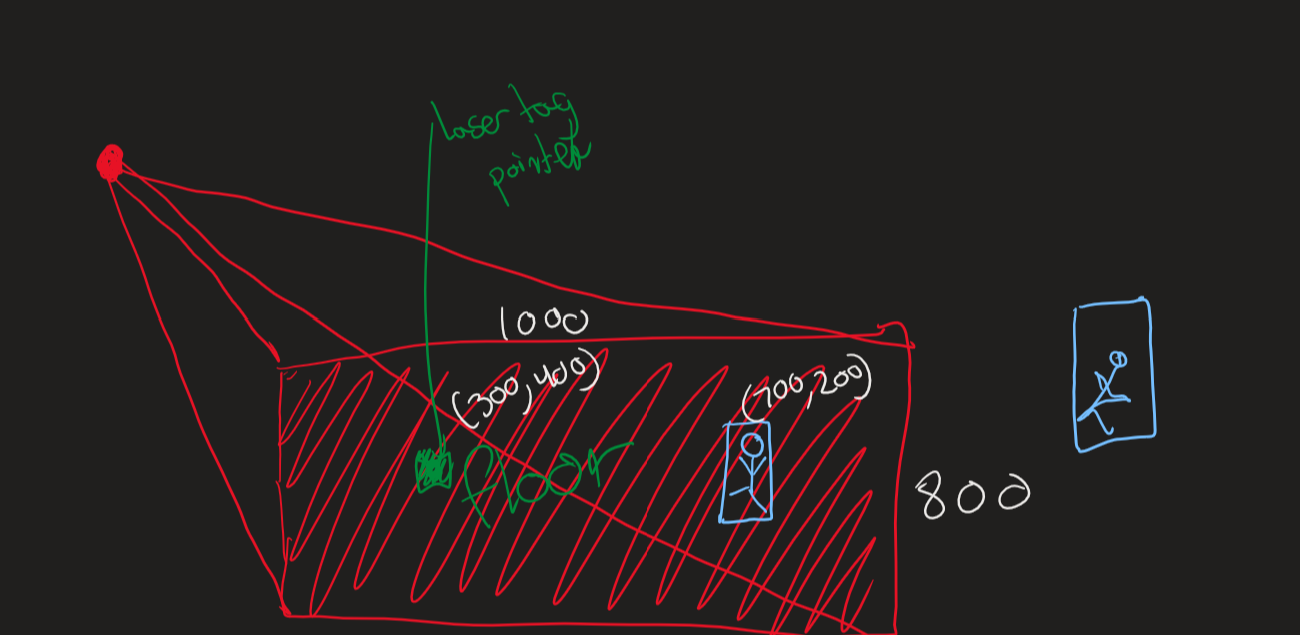 Laser tag
pointer
1000
(300,400)
(700,200)
floor
800